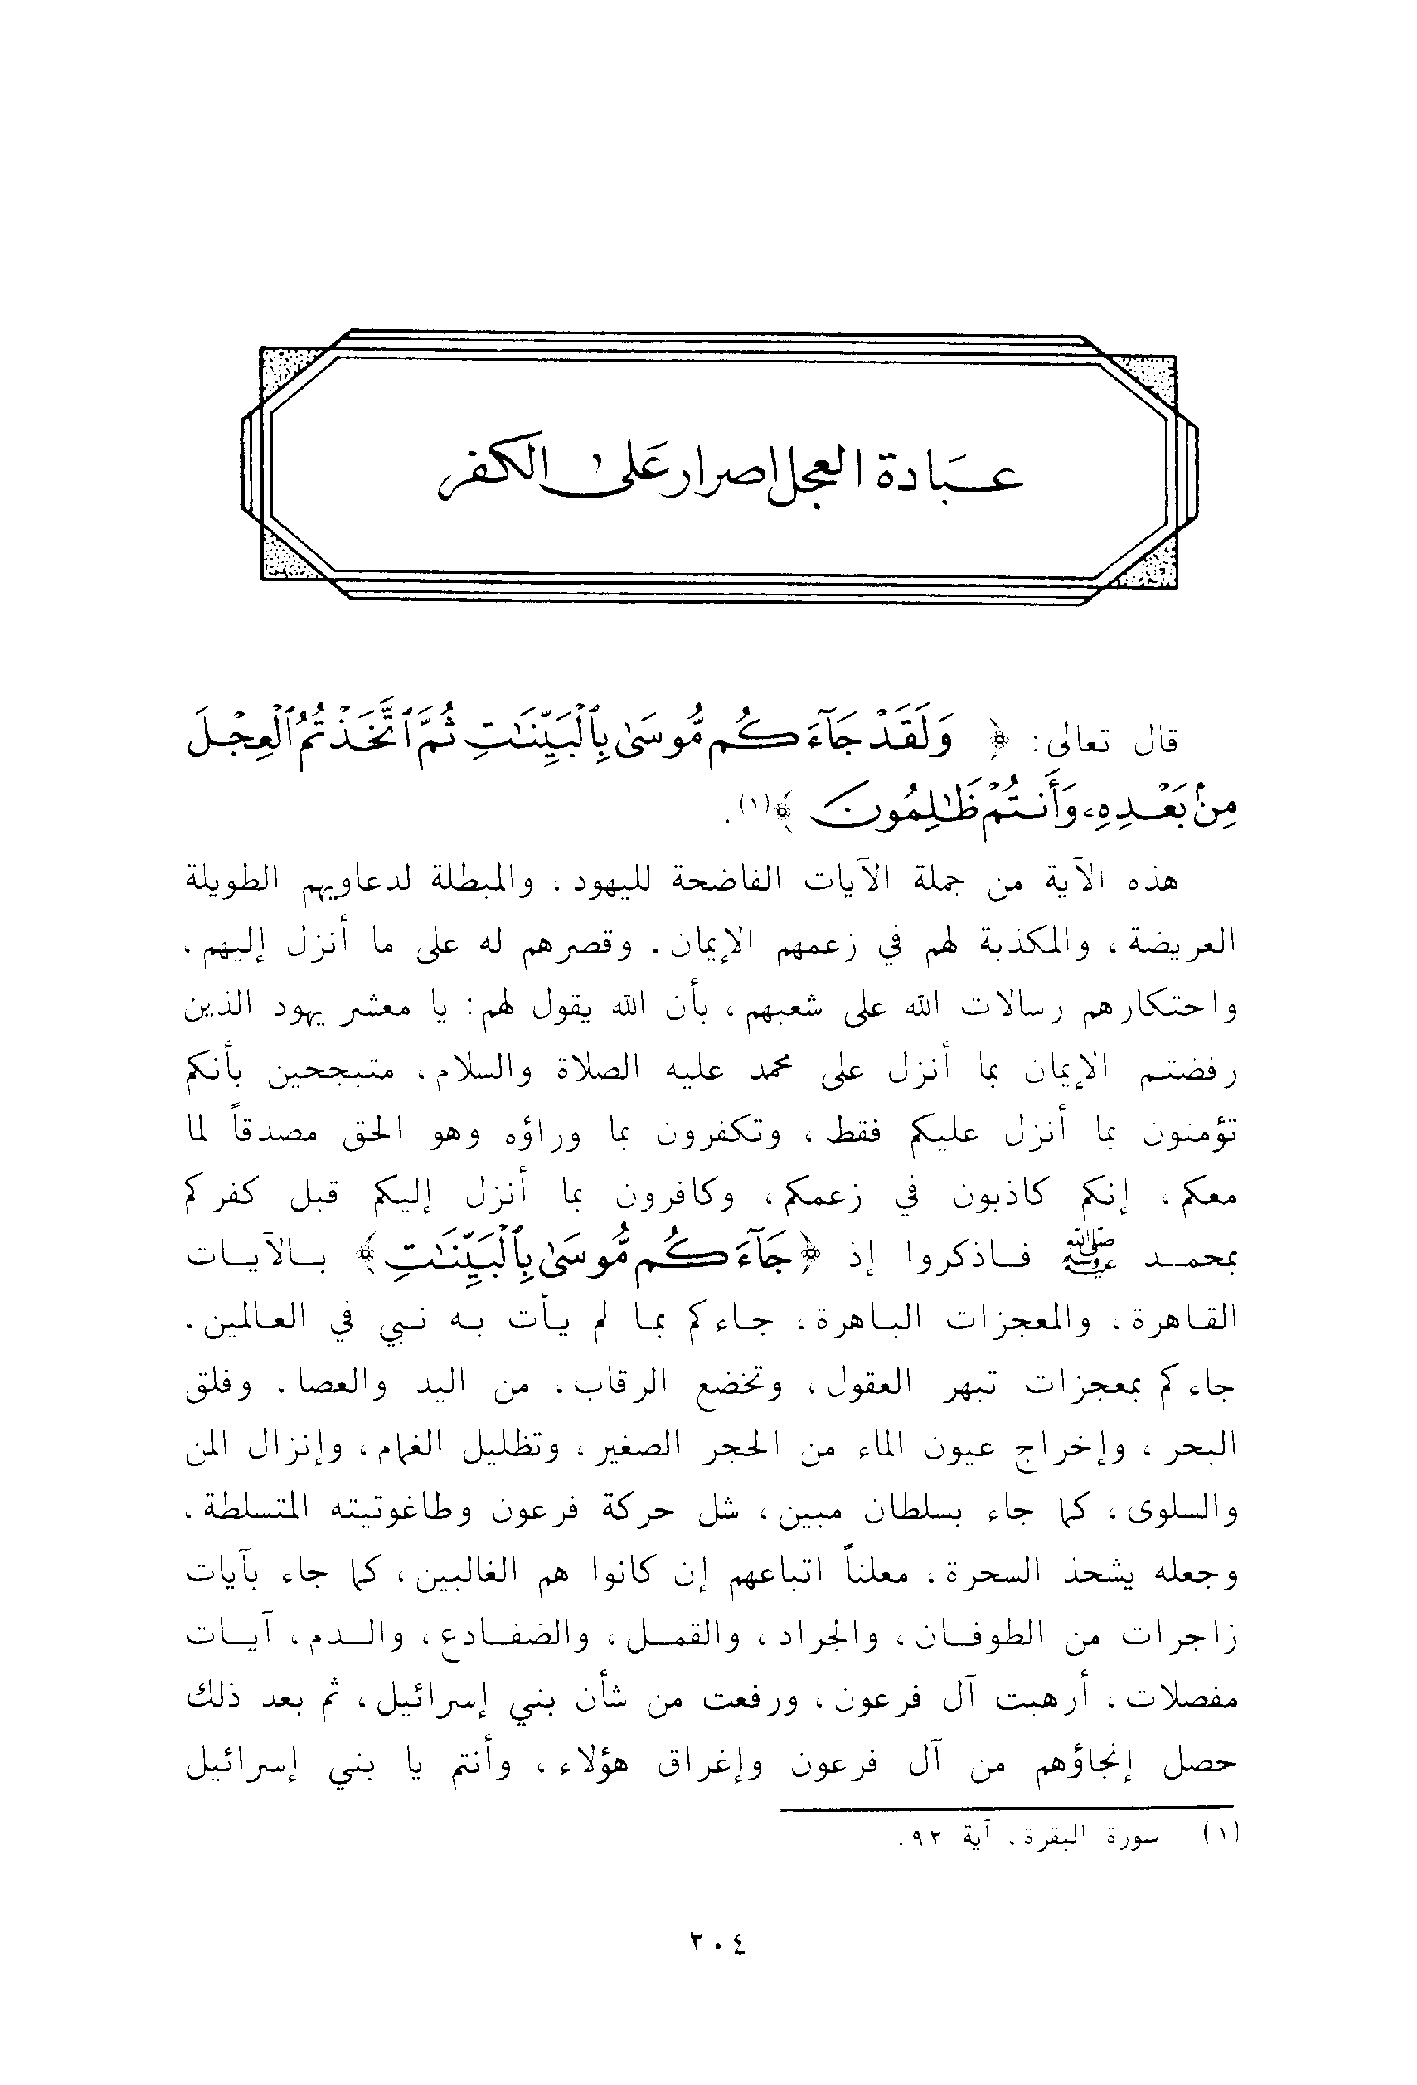 عبادة العجل اصرار على الكفر
قال تعالى: ﴿ وَلَقَدْ جَآءَكُم مُّوسَىٰ بِٱلْبَيِّنَٰتِ ثُمَّ ٱتَّخَذْتُمُ ٱلْعِجْلَ
مِنۢ بَعْدِهِۦ وَأَنتُمْ ظَٰلِمُونَ ﴾(١).
هذه الآية من جملة الآيات الفاضحة لليهود. والمبطلة لدعاويهم الطويلة
العريضة، والمكذبة لهم في زعمهم الإيمان. وقصرهم له على ما أنزل إليهم.
واحتكارهم رسالات الله على شعبهم، بأن الله يقول لهم: يا معشر يهود الذين
رفضتم الإيمان بما أنزل على محمد عليه الصلاة والسلام. متبجحين بأنكم
تؤمنون بما أنزل عليكم فقط، وتكفرون بما وراؤه وهو الحق مصدقاً لما
معكم، إنكم كاذبون في زعمكم، وكافرون بما أنزل إليكم قبل كفركم
بمحمد ﷺ فاذكروا إذ ﴿جَآءَكُم مُّوسَىٰ بِٱلْبَيِّنَٰتِ﴾ بالآيات
القاهرة. والمعجزات الباهرة، جاءكم بما لم يأت به نبي في العالمين.
جاءكم بمعجزات تبهر العقول، وتخضع الرقاب. من اليد والعصا. وفلق
البحر، وإخراج عيون الماء من الحجر الصغير، وتظليل الغمام، وإنزال المن
والسلوى، كما جاء بسلطان مبين، شل حركة فرعون وطاغوتيته المتسلطة.
وجعله يشحذ السحرة. معلناً اتباعهم إن كانوا هم الغالبين، كما جاء بآيات
زاجرات من الطوفان، والجراد، والقمل، والضفادع، والدم، آيات
مفصلات. أرهبت آل فرعون، ورفعت من شأن بني إسرائيل، ثم بعد ذلك
حصل إنجاؤهم من آل فرعون وإغراق هؤلاء، وأنتم يا بني إسرائيل
(١) سورة البقرة. آية ٩٢.
٢٠٤